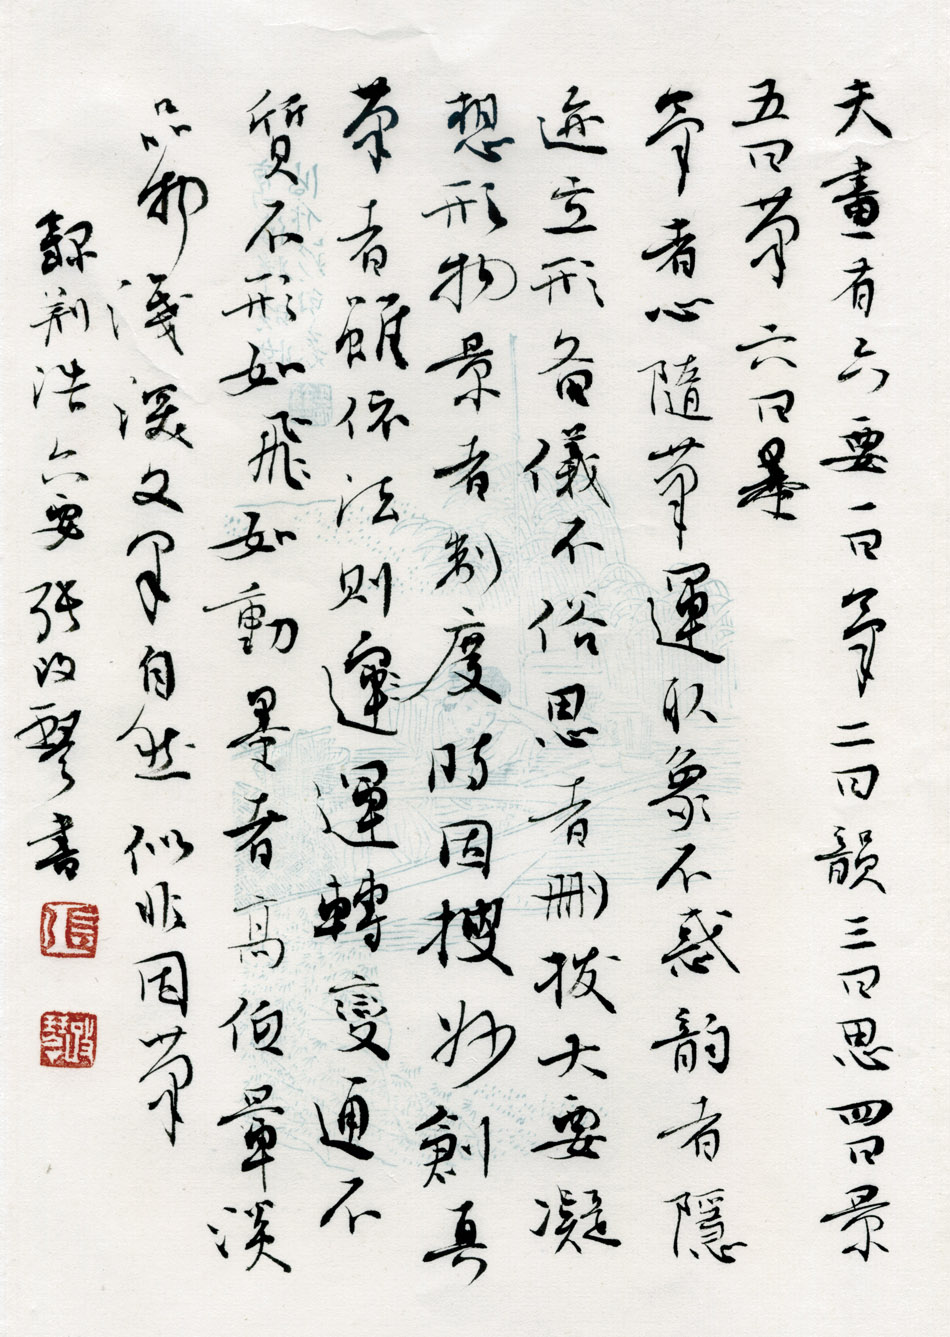 夫畫有六要一曰氣二曰韻三曰思四曰景
五曰筆六曰墨
氣者心隨筆運取象不惑韵者隱
迹立形备儀不俗思者删拨大要凝
想形物景者制度時因搜妙創真
筆者雖依法則運運轉變通不
質不形如飛如動墨者高低暈淡
品物淺深文采自然似非因筆
録荆浩六要張改琴書
張
改琴